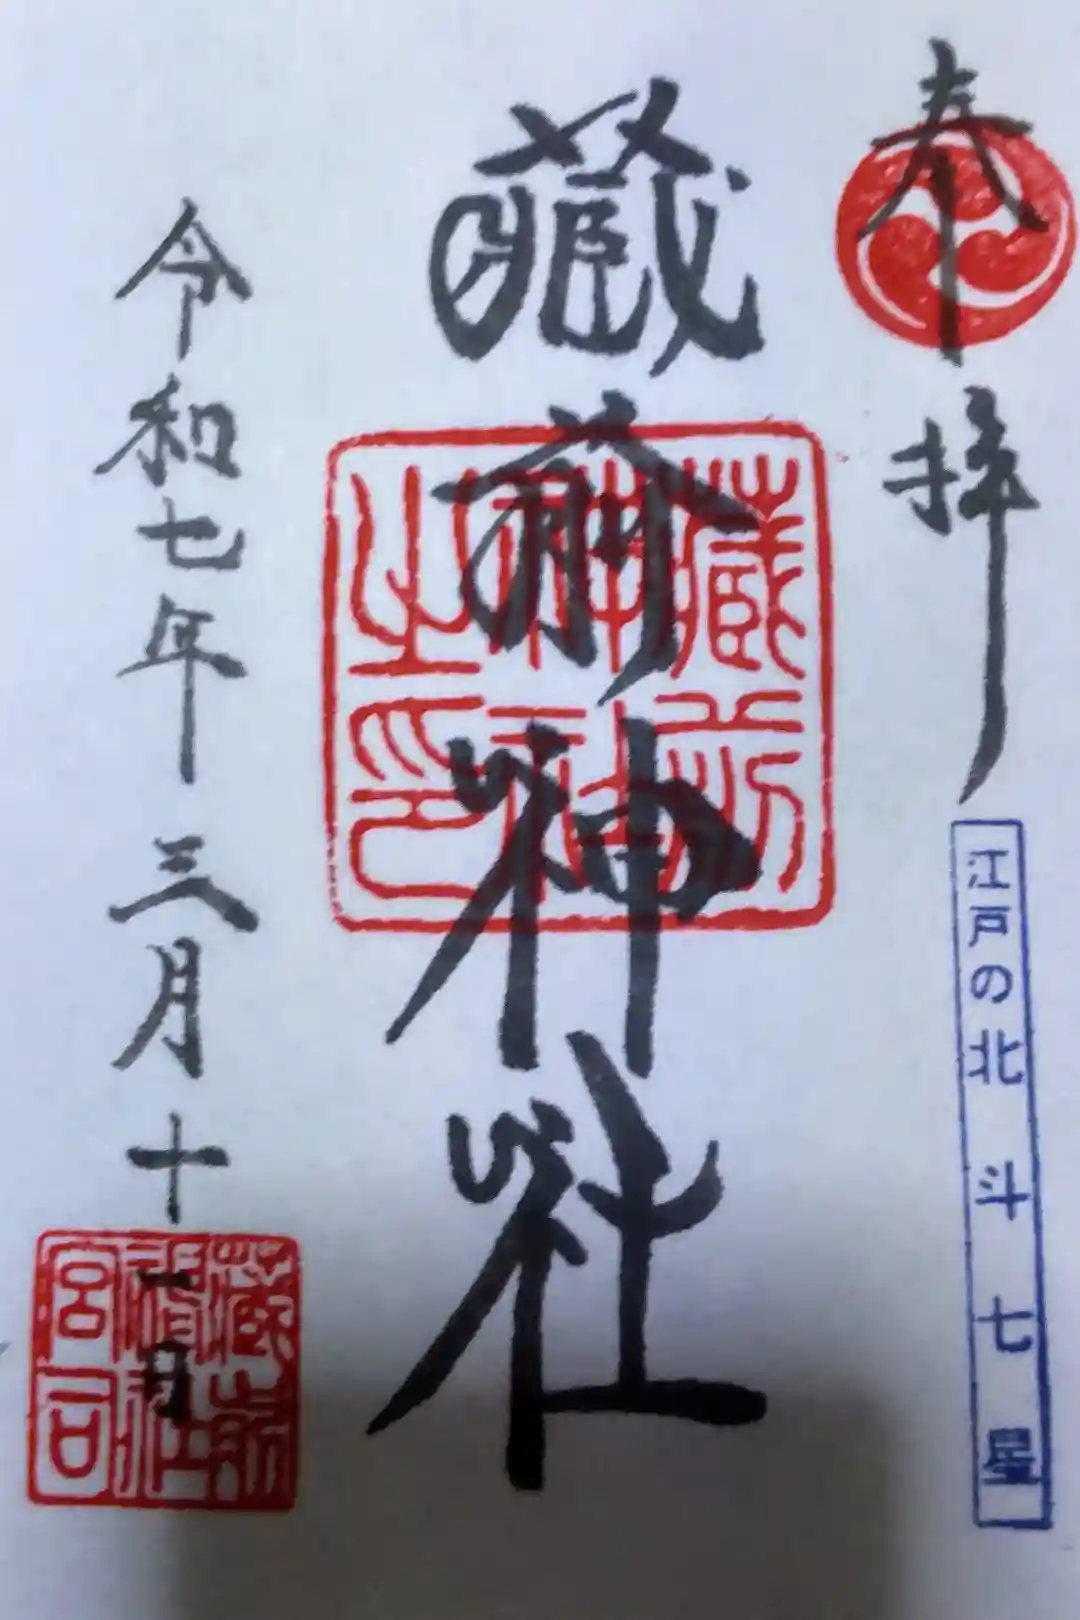 奉拝
江戸の北斗七星
藏前神社
蔵前
神社
之印
令和七年三月十一日
蔵前
神社
宮司